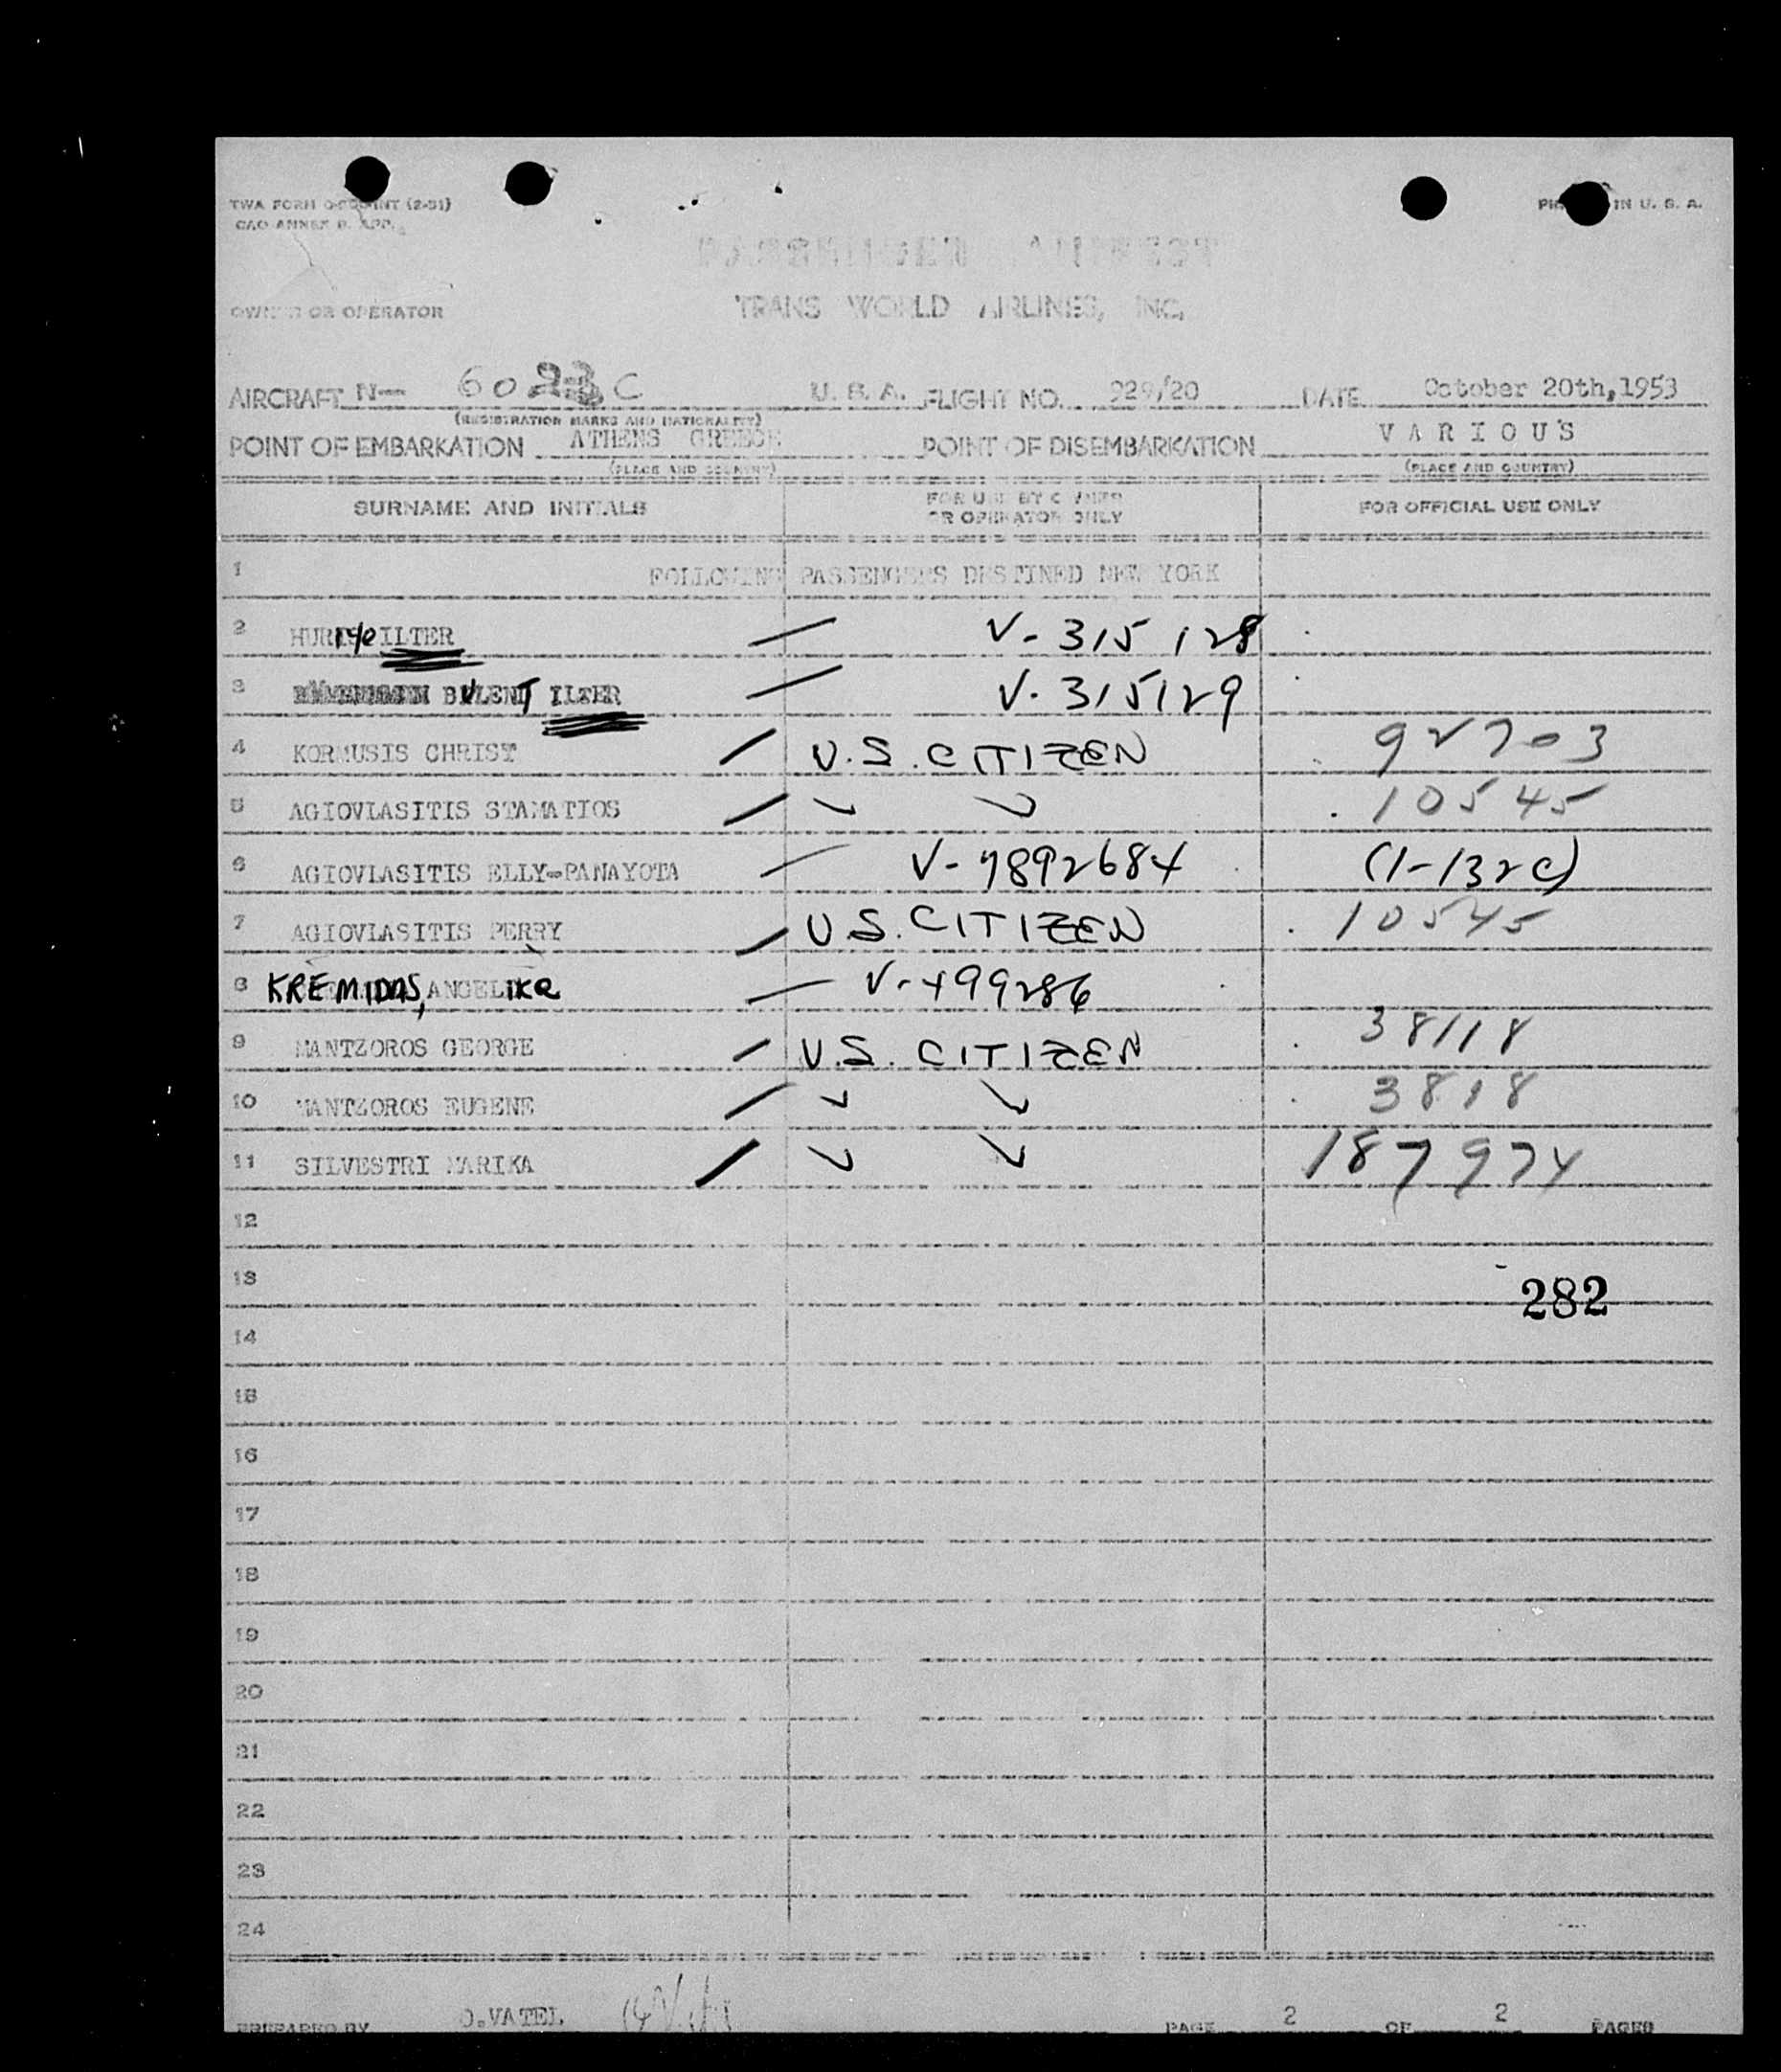 TWA FORM (2-51)
ICAO ANNEX 9, APP.
PRINTED IN U. S. A.
PASSENGER MANIFEST
OWNER OR OPERATOR TRANS WORLD AIRLINES, INC.
AIRCRAFT N— C U. S. A. FLIGHT NO. 929/20 DATE October 20th, 1953
(REGISTRATION MARKS AND NATIONALITY)
POINT OF EMBARKATION ATHENS GREECE POINT OF DISEMBARKATION VARIOUS
(PLACE AND COUNTRY) (PLACE AND COUNTRY)
SURNAME AND INITIALS FOR USE BY OWNER OR OPERATOR ONLY FOR OFFICIAL USE ONLY
1 FOLLOWING PASSENGERS DESTINED NEW YORK
2 ILTER V-315128
3 BULENT ILTER V-315129
4 KORMUSIS CHRIST U.S. CITIZEN 92703
5 AGIOVLASITIS STAMATIOS 10545
6 AGIOVLASITIS ELLY-PANAYOTA V-7892684 (1-132c)
7 AGIOVLASITIS PERRY U.S. CITIZEN 10545
8 KREMIDAS, ANGELIKE V-499286
9 MANTZOROS GEORGE U.S. CITIZEN 38118
10 MANTZOROS EUGENE 3818
11 SILVESTRI MARIKA 187974
12
13
282
14
15
16
17
18
19
20
21
22
23
24
PREPARED BY O.VATEL PAGE 2 OF 2 PAGES